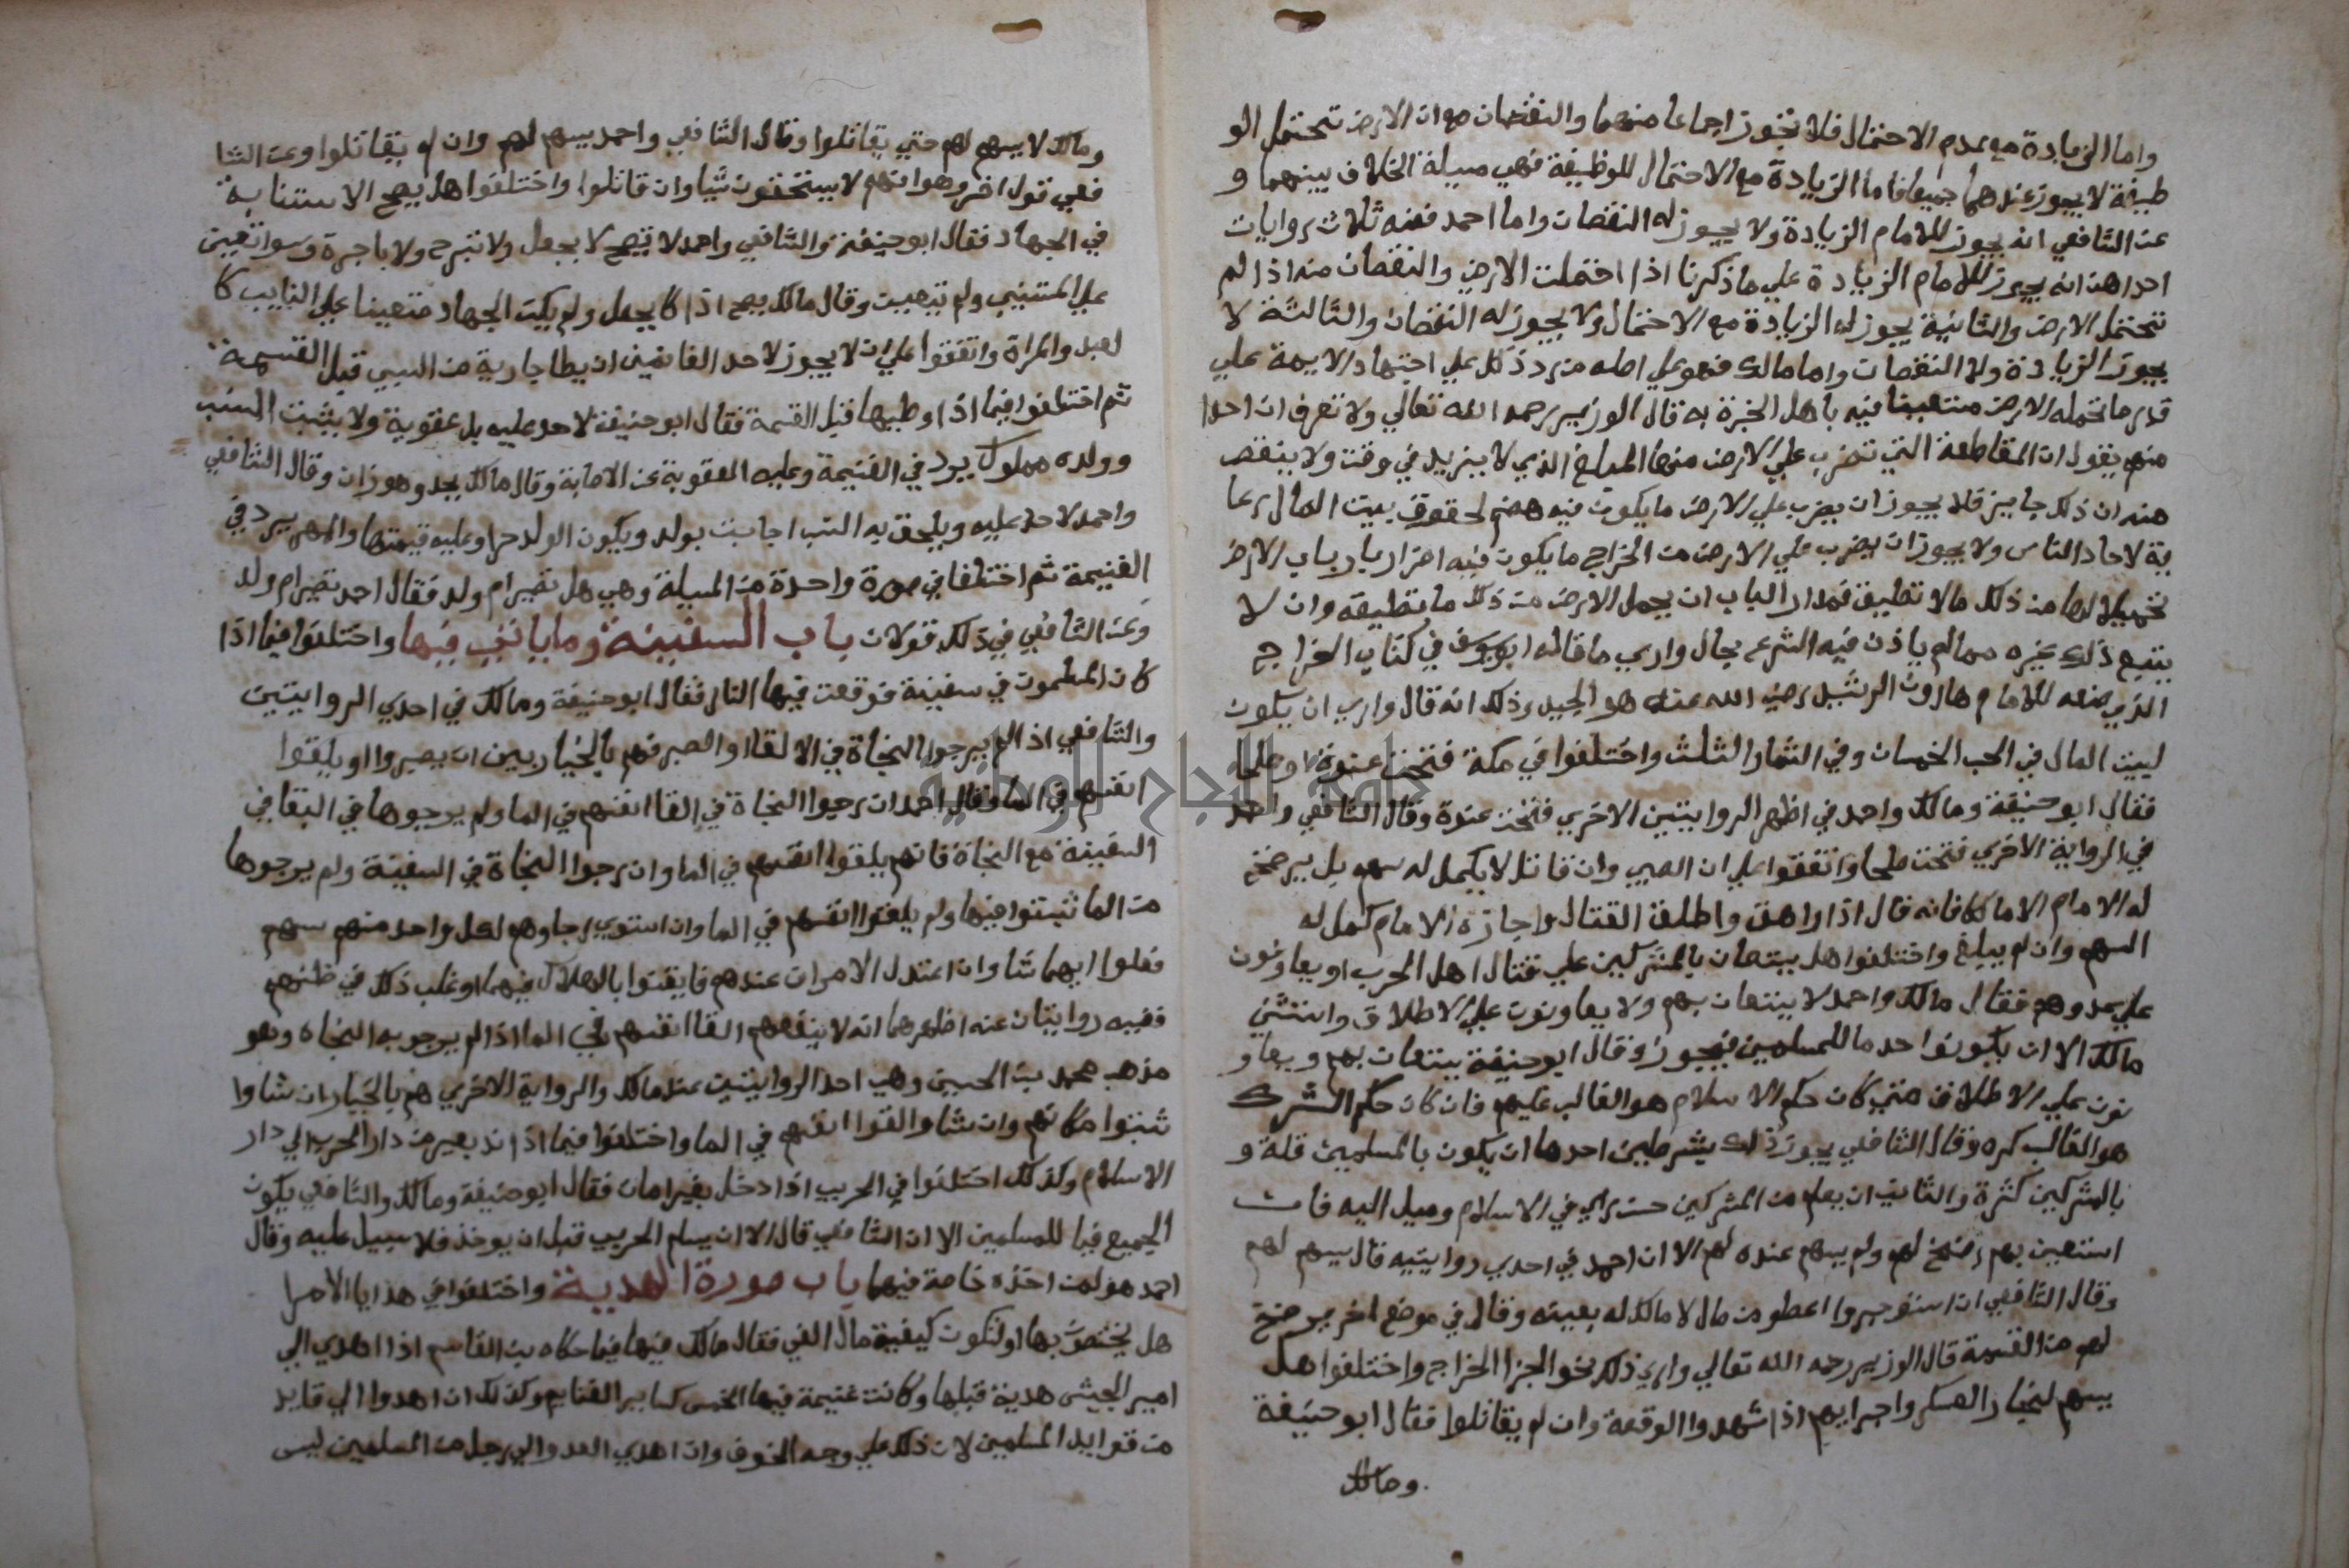 واما الزيادة مع عدم الاحتمال فلا تجوز اجماعا منهما والنقصان مع ان الارض تحتمل الو
ظيفة لا يجوز عندهما جميعا فاما الزيادة مع الاحتمال للوظيفة فهي مسيلة الخلاف بينهما و
عن الشافعي انه يجوز للامام الزيادة ولا يجوز له النقصان واما احمد فعنه ثلاث روايات
احداهن انه يجوز للامام الزيادة علي ما ذكرنا اذا احتملت الارض والنقصان منه اذا لم
تحتمل الارض والثانية يجوز له الزيادة مع الاحتمال ولا يجوز له النقصان والثالثة لا
يجوز الزيادة ولا النقصان واما مالك فهو علي اصله من رد ذلك كل علي اجتهاد الايمة علي
قدر ما تحمله الارض منتعينا فيه باهل الخبرة به قال الوزير رحمه الله تعالي ولا نعرف ان احدا
منهم يقول ان المقاطعة التي تضرب علي الارض منها المبلغ الذي لا يزيد في وقت ولا ينقص
منه ان ذلك جايز فلا يجوز ان يضرب علي الارض ما يكون فيه هضم لحقوق بيت المال رعا
ية لاحاد الناس ولا يجوز ان يضرب علي الارض من الخراج ما يكون فيه اضرار بارباب الارض
تحميلا لها من ذلك ما لا تطيق فمدار الباب ان يحمل الارض من ذلك ما تطيقه وان لا
يتبع ذلك غيره مما لم ياذن فيه الشرع بحال واري ما قاله ابو يوسف في كتاب الخراج
الذي صنعه للامام هارون الرشيد رضي الله عنه هو الجيد وذلك انه قال واري ان يكون
لبيت المال في الحب الخمسان وفي الثمار الثلث واختلفوا في مكة فتحت عنوة او صلحا
فقال ابو حنيفة ومالك واحمد في اظهر الروايتين الاخري فتحت عنوة وقال الشافعي واحمد
في الرواية الاخري فتحت صلحا واتفقوا علي ان الصبي وان قاتل لا يكمل له سهم بل يرضخ
له الامام الا مالكا فانه قال اذا راهق واطلق القتال واجازه الامام كمل له
السهم وان لم يبلغ واختلفوا هل يستعان بالمشركين علي قتال اهل الحرب او يعاونون
علي عدوهم فقال مالك واحمد لا يستعان بهم ولا يعاونون علي الاطلاق واستثني
مالك الا ان يكونوا خدما للمسلمين فيجوز وقال ابو حنيفة يستعان بهم ويعاو
نون علي الاطلاق متي كان حكم الاسلام هو الغالب عليهم فان كان حكم الشرك
هو الغالب كره وقال الشافعي يجوز ذلك بشرطين احدهما ان يكون بالمسلمين قلة و
بالمشركين كثرة والثاني ان يعلم من المشركين حسن راي في الاسلام وميل اليه فان
استعين بهم رضخ لهم ولم يسهم عنده لهم الا ان احمد في احدي روايتيه قال يسهم لهم
وقال الشافعي ان استؤجروا اعطو من مال لا مالك له بعينه وقال في موضع اخر يرضخ
لهم من القسمة قال الوزير رحمه الله تعالي واري ذلك نحو الجزا الخراج واختلفوا هل
يسهم لتجار العسكر واجرايهم اذا شهدوا الوقعة وان لم يقاتلوا فقال ابو حنيفة
ومالك
ومالك لا يسهم لهم حتي يقاتلوا وقال الشافعي واحمد يسهم لهم وان لم يقاتلوا وعن الشا
فعي قول اخر وهو انهم لا يستحقون شيا وان قاتلوا واختلفوا هل يصح الاستنابة
في الجهاد فقال ابو حنيفة والشافعي واحمد لا تصح لا بجعل ولا تبرع ولا باجرة وسوا تعين
علي المستنيب ولم تتعين وقال مالك يصح اذا كا بجعل ولم يكن الجهاد متعينا علي النايب كا
لعبد والمراة واتفقوا علي ان لا يجوز لاحد الغانمين ان يطا جارية من السبي قبل القسمة
ثم اختلفوا فيما اذا وطيها قبل القسمة فقال ابو حنيفة لا حد عليه بل عقوبة ولا يثبت النسب
وولده مملوك يرد في الغنيمة وعليه العقوبة عن الاصابة وقال مالك يحد وهو زان وقال الشافعي
واحمد لا حد عليه ويلحق به النسب اجانبت بولد ويكون الولد حرا وعليه قيمتها والمهر يرد في
الغنيمة ثم اختلفا في صورة واحدة من المسيلة وهي هل تصير ام ولد فقال احمد تصير ام ولد
وعن الشافعي في ذلك قولان باب السفينة وما ياتي فيها واختلفوا فيما اذا
كان المسلمون في سفينة فوقعت فيها النار فقال ابو حنيفة ومالك في احدي الروايتين
والشافعي اذا لم يرجوا النجاة في الالقا او الصبر فهم بالخيار بين ان يصبروا او يلقوا
انفسهم في الما وقال احمد ان رجوا النجاة في القا انفسهم في الما ولم يرجوها في البقا في
السفينة مع النجاة فانهم يلقوا انفسهم في الما وان رجوا النجاة في السفينة ولم يرجوها
من الما ثبتوا فيها ولم يلقوا انفسهم في الما وان استوي رجاوهم لكل واحد منهم سهم
فعلوا ايهما شاوا ان اعتدل الامران عندهم فايقنوا بالهلاك فيهما او غلب ذلك في ظنهم
ففيه روايتان عنه اظهرهما انه لا ينفعهم القا انفسهم في الما اذا لم يرجو به النجاه وهو
مذهب محمد بن الحسين وهي احد الروايتين عند مالك والرواية الاخري هم بالخيار ان شاوا
ثبتوا مكانهم وان شاوا القوا انفسهم في الما واختلفوا فيما اذا ند بعير من دار الحرب الي دار
الاسلام وكذلك اختلفوا في الحربي اذا دخل بغير امان فقال ابو حنيفة ومالك والشافعي يكون
الجميع فيا للمسلمين الا ان الشافعي قال الا ان يسلم الحربي قبل ان يوخذ فلا سبيل عليه وقال
احمد هو لمن اخذه خاصة فيهما باب صورة الهدية واختلفوا في هدايا الامرا
هل يختص بها او تكون كيفية مال الفي فقال مالك فيها فيما حكاه بن القاسم اذا اهدي الي
امير الجيش هدية قبلها وكانت غنيمة فيها الخمس كساير الغنايم وكذلك ان اهدوا الي قايد
من قوايد المسلمين لان ذلك علي وجه الخوف وان اهدي العدو الي رجل من المسلمين ليس